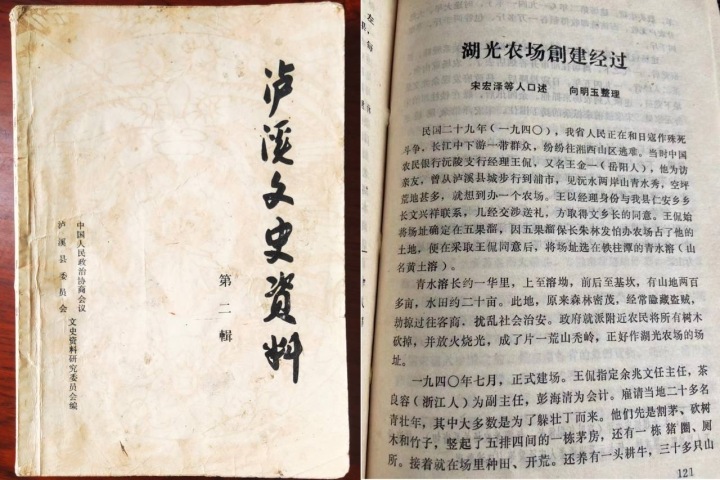 泸溪文史資料
第二輯
中国人民政治协商会议
泸溪县委员会
文史资料研究委员会编
湖光农场創建经过
宋宏泽等人口述 向明玉整理
民国二十九年(一九四〇),我省人民正在和日寇作殊死
斗争,长江中下游一带群众,纷纷往湘西山区逃难。当时中国
农民银行沅陵支行经理王侃,又名王金一(岳阳人),他为访
亲友,曾从泸溪县城步行到浦市,见沅水两岸山青水秀,空坪
荒地甚多,就想到办一个农场。王以经理身份与我县仁安乡乡
长文兴祥联系,几经交涉送礼,方取得文乡长的同意。王侃始
将场址确定在五果溜,因五果溜保长朱林发怕办农场占了他的
土地,便在采取王侃同意后,将场址选在铁柱潭的青水溶(山
名黄土溶)。
青水溶长约一华里,上至溶坳,前后至基坎,有山地两百
多亩,水田约二十亩。此地,原来森林密茂,经常隐藏盗贼,
劫掠过往客商,扰乱社会治安。政府就派附近农民将所有树木
砍掉,并放火烧光,成了片一荒山秃岭,正好作湖光农场的场
址。
一九四〇年七月,正式建场。王侃指定余兆文任主任,茶
良容(浙江人)为副主任,彭海清为会计。雇请当地二十多名
青壮年,其中大多数是为了躲壮丁而来。他们先是割茅、砍树
木和竹子,竖起了五排四间的一栋茅房,还有一栋猪圈、厕
所。接着就在场里种田、开荒。还养有一头耕牛,三十多只山
121